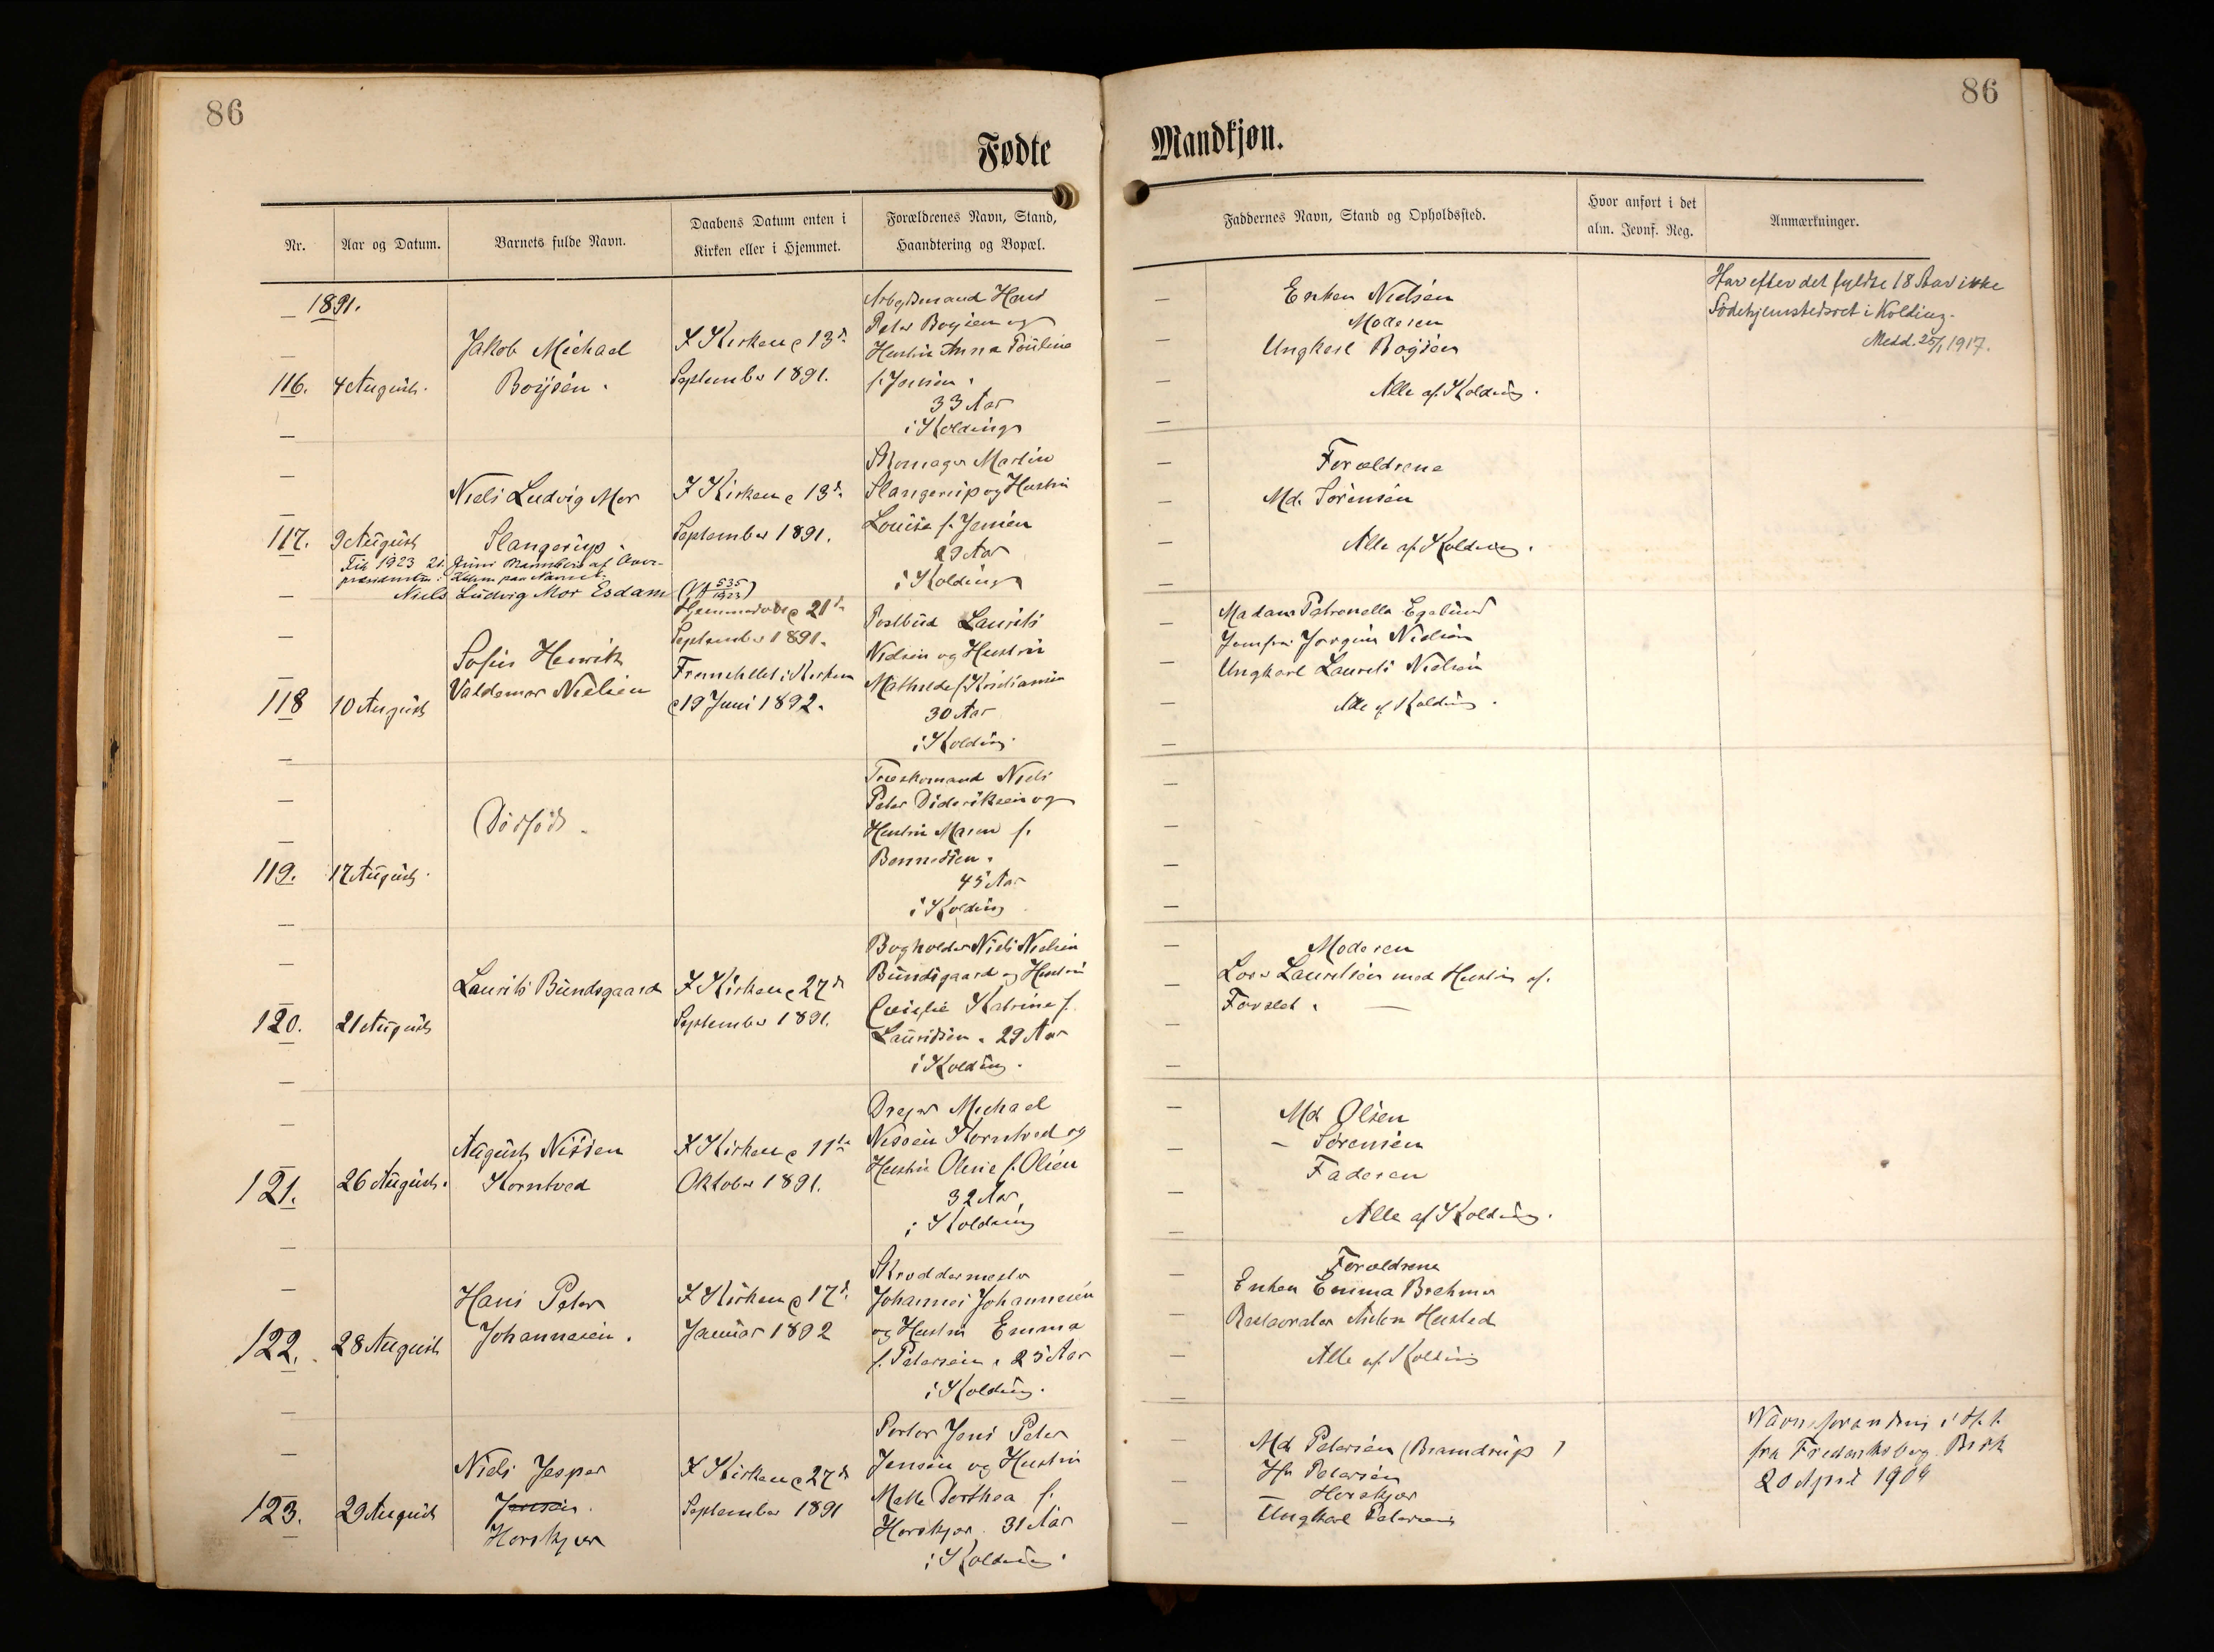 86
86
Fødte
Mandkjøn.
Nr.
Aar og Datum.
Barnets fulde Navn.
Daabens Datum enten i
Kirken eller i Hjemmet.
Forældrenes Navn, Stand,
Haandtering og Bopæl.
Faddernes Navn, Stand og Opholdssted.
Hvor anført i det
alm. Jevnf. Reg.
Anmærkninger.
1891.
116.
4 August.
Jakob Michael
Boysen.
I Kirken d 13de
September 1891.
Arbejdsmand Hans
Peter Boysen og
Hustru Anna Pouline
f. Jensen.
33 Aar
i Kolding
Enken Nielsen
Moderen
Ungkarl Boysen
Alle af Kolding.
Har efter det fyldte 18 Aar ikke
Fødehjemstedsret i Kolding.
Medd. 25/1 1917.
117.
9 August
Niels Ludvig Mor
Slangerup.
Fik 1923 21. Juni Navnebevis af Over-
præsidenten i Kbhvn paa Navnet:
Niels Ludvig Mor Esdam
(535/1923)
I Kirken d 13de
September 1891.
Skomager Martin
Slangerup og Hustru
Louise f. Jensen
29 Aar
i Kolding
Forældrene
Md. Sørensen
Alle af Kolding.
118
10 August
Sofus Henrik
Valdemar Nielsen
Hjemmedøbt d 21de
September 1891.
Fremstillet i Kirken
d 19 Juni 1892.
Postbud Laurits
Nielsen og Hustru
Mathilde f. Kristiansen
30 Aar
i Kolding.
Madam Petronella Egelund
Jomfru Jørgine Nielsen
Ungkarl Laurits Nielsen
Alle af Kolding.
119.
17 August.
Dødfødt.
Træskomand Niels
Peter Dideriksen og
Hustru Maren f.
Bennedsen.
45 Aar
i Kolding
120.
21 August
Laurits Bundsgaard
I Kirken d 27de
September 1891.
Bogholder Niels Nielsen
Bundsgaard og Hustru
Cecilie Katrine f.
Lauridsen. 29 Aar
i Kolding.
Moderen
Lauritsen med Hustru af
121.
26 August.
August Nissen
Korntved
I Kirken d 11te
Oktober 1891.
Drejer Michael
Nissen Korntved og
Hustru Oline f. Olsen
32 Aar
i Kolding
Md Olsen
— Sørensen
Faderen
Alle af Kolding.
122.
28 August
Hans Peter
Johannesen.
I Kirken d 17de
Januar 1892
Skræddermester
Johannes Johannesen
og Hustru Emma
f. Petersen. 25 Aar
i Kolding.
Forældrene
Enken Emma Brehmer
Restauratør Anton Husted
Alle af Kolding
123.
29 August
Niels Jesper
Jensen.
Horskjær
I Kirken d 27de
September 1891
Portør Jens Peter
Jensen og Hustru
Mette Dorthea f.
Horskjær. 31 Aar
i Kolding.
Md Petersen (Bramdrup)
Hr Petersen
— Horskjær
Ungkarl Petersen
Navneforandring i H. t.
fra Frederiksberg Birk
20 April 1904